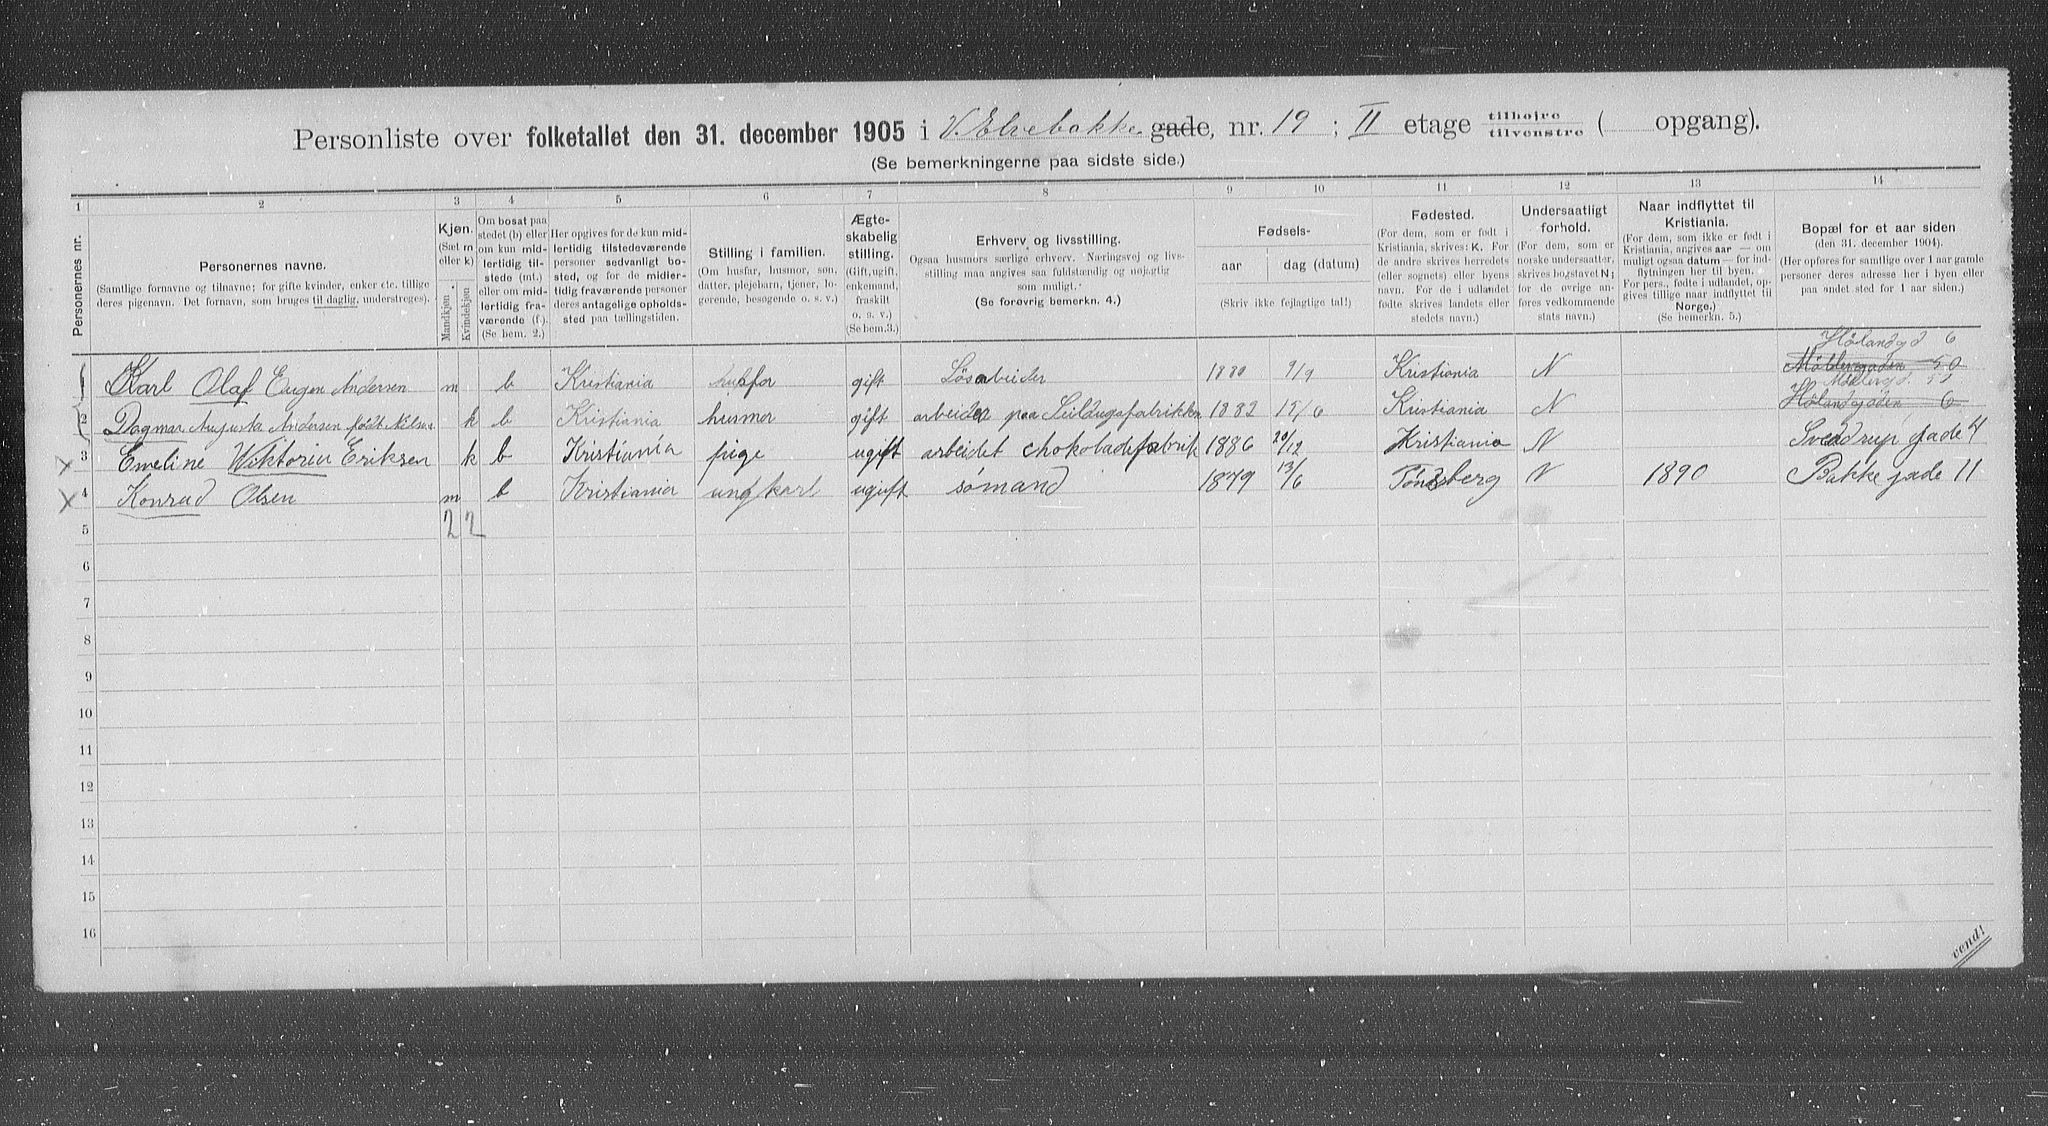 Personliste over folketallet den 31. december 1905 i V. Elvebakke gade, nr. 19 ; II etage tilhøjre tilvenstre ( opgang).
(Se bemerkningerne paa sidste side.)
1 2 3 4 5 6 7 8 9 10 11 12 13 14
Personernes nr.
Personernes navne.
(Samtlige fornavne og tilnavne; for gifte kvinder, enker etc. tillige
deres pigenavn. Det fornavn, som bruges til daglig, understreges).
Kjøn.
(Sæt m
eller k)
Mandkjøn
Kvindekjøn
Om bosat paa
stedet (b) eller
om kun mid-
lertidig til-
stede (mt.)
eller om mid-
lertidig fra-
værende (f.)
(Se bem. 2.)
Her opgives for de kun mid-
lertidig tilstedeværende
personer sedvanligt bo-
sted, og for de midler-
tidig fraværende personer
deres antagelige opholds-
sted paa tællingstiden.
Stilling i familien.
(Om husfar, husmor, søn,
datter, plejebarn, tjener, lo-
gerende, besøgende o. s. v.)
Ægte-
skabelig
stilling.
(Gift, ugift,
enkemand,
fraskilt
o. s. v.)
(Se bem.3.)
Erhverv og livsstilling.
Ogsaa husmors særlige erhverv. Næringsvej og livs-
stilling maa angives saa fuldstændig og nøjagtig
som muligt.
(Se forøvrig bemerkn. 4.)
Fødsels-
aar
dag (datum)
(Skriv ikke fejlagtige tal!)
Fødested.
(For dem, som er født i
Kristiania, skrives: K. For
de andre skrives herredets
(eller sognets) eller byens
navn. For de i udlandet
fødte skrives landets eller
stedets navn.)
Undersaatligt
forhold.
(For dem, som er
norske undersaatter,
skrives bogstavet N;
for de øvrige an-
føres vedkommende
stats navn.)
Naar indflyttet til
Kristiania.
(For dem, som ikke er født i
Kristiania, angives aar — om
muligt ogsaa datum — for ind-
flytningen her til byen.
For pers., fødte i udlandet, op-
gives tillige naar indflyttet til
Norge.)
(Se bemerkn. 5.)
Bopæl for et aar siden
(den 31. december 1904).
(Her opføres for samtlige over 1 aar gamle
personer deres adresse her i byen eller
paa andet sted for 1 aar siden.)
Hølandgd 6
1 Karl Olaf Eugen Andersen m b Kristiania husfar gift Løsarbeider 1880 9/9 Kristiania N Møllergaden 50
Møllergd. 50
2 Dagmar Augusta Andersen født Nilsen k b Kristiania husmor gift arbeider paa Seildugsfabrikken 1882 15/6 Kristiania N Hølandgaden 6
x 3 Emeline Wiktoria Eriksen k b Kristiania pige ugift arbeidet chokoladefabrik 1886 20/12 Kristiania N Svedrup gade 4
x 4 Konrad Olsen m b Kristiania ungkarl ugift sømand 1879 13/6 Tønsberg N 1890 Bakke gade 11
5 2 2
6
7
8
9
10
11
12
13
14
15
16
vend!